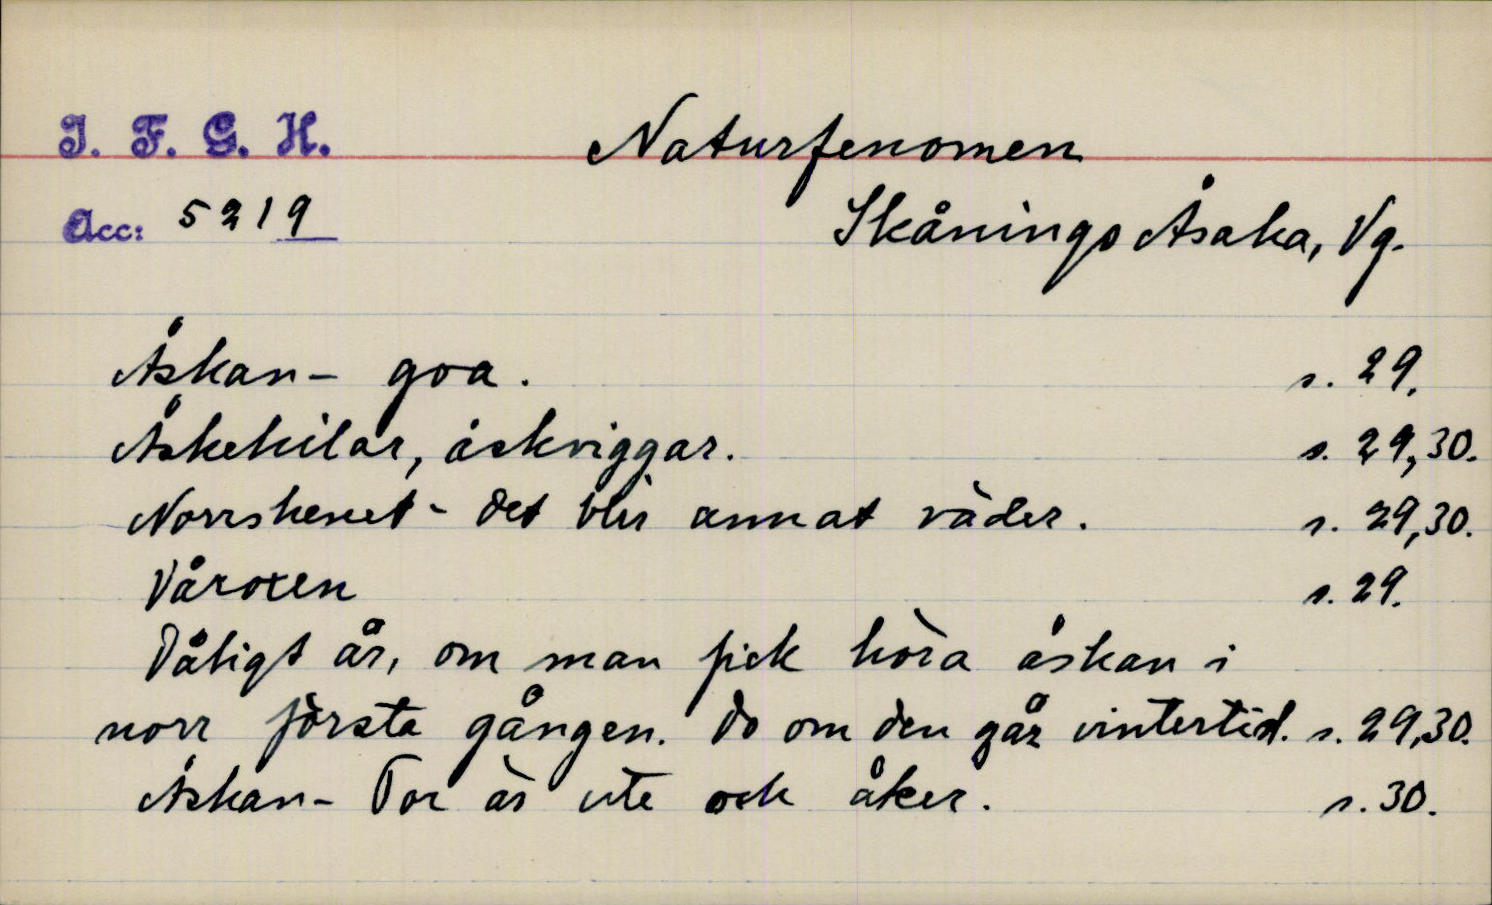 I. F. G. H.
Naturfenomen
Acc: 5219
Skånings Åsaka, Vg.
Åskan - goa. s. 29.
Åskekilar, åskviggar. s. 29,30.
Norrskenet - det blir annat väder. s. 29,30.
Våroxen s. 29.
Dåligt år, om man fick höra åskan i
norr första gången. Do om den går vintertid. s. 29,30.
Åskan - Tor är ute och åker. s. 30.